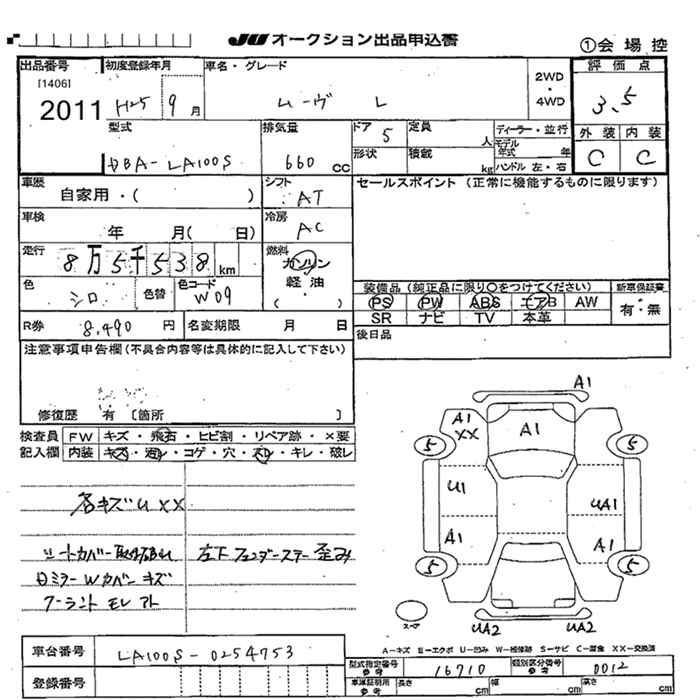 JU オークション出品申込書
①会場控
出品番号 初度登録年月 車名・グレード 2WD ・ 4WD 評価点
[1406]
2011 H25 9月 ムーヴ L 3.5
型式 排気量 ドア 5 定員 人 ディーラー・並行 外装 内装
DBA-LA100S 660 CC 形状 積載 kg モデル年式 年 ハンドル 左・右 C C
車歴 自家用・( ) シフト AT セールスポイント (正常に機能するものに限ります)
車検 年 月( 日) 冷房 AC
走行 8万5千538 km 燃料 ガソリン
色 シロ 色替 色コード W09 軽油 ( ・ )
装備品 (純正品に限り○をつけてください) 新車保証書
PS PW ABS エアB AW 有・無
SR ナビ TV 本革
R券 8,490 円 名変期限 月 日 後日品
注意事項申告欄 (不具合内容等は具体的に記入して下さい)
修復歴 有 〔箇所 〕
検査員 FW キズ・飛石・ヒビ割・リペア跡・×要
記入欄 内装 キズ・汚レ・コゲ・穴・スレ・キレ・破レ
各キズU XX
シートカバー取付破れ 左下フェンダーステー歪み
日ミラーWカバーキズ
クーラントモレアト
A1
A1 XX A1
5 5
U1 UA1
A1 A1
5 5
スペア
UA2 UA2
A-キズ E-エクボ U-凹み W-補修跡 S-サビ C-腐食 XX-交換済
車台番号 LA100S-0254753
型式指定番号 参考 16710 類別区分番号 参考 0012
登録番号
車庫証明用 参考 長さ cm 巾 cm 高さ cm